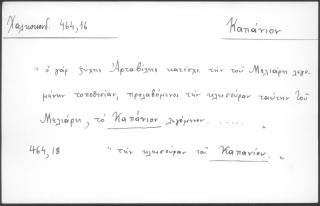 Χαλκοκονδ. 464,16
Καπάνιον
" ὁ γὰρ ζίχης Ἀρταβίλης κατέσχε τὴν τοῦ Μελιάρη λεγο-
μένην τοποθεσίαν, προλαβόμενος τὴν κλεισοῦραν ταύτην τοῦ
Μελιάρη, τὸ Καπάνιον λεγόμενον ..... "
464,18 " τὴν κλεισοῦραν τοῦ Καπανίου. "